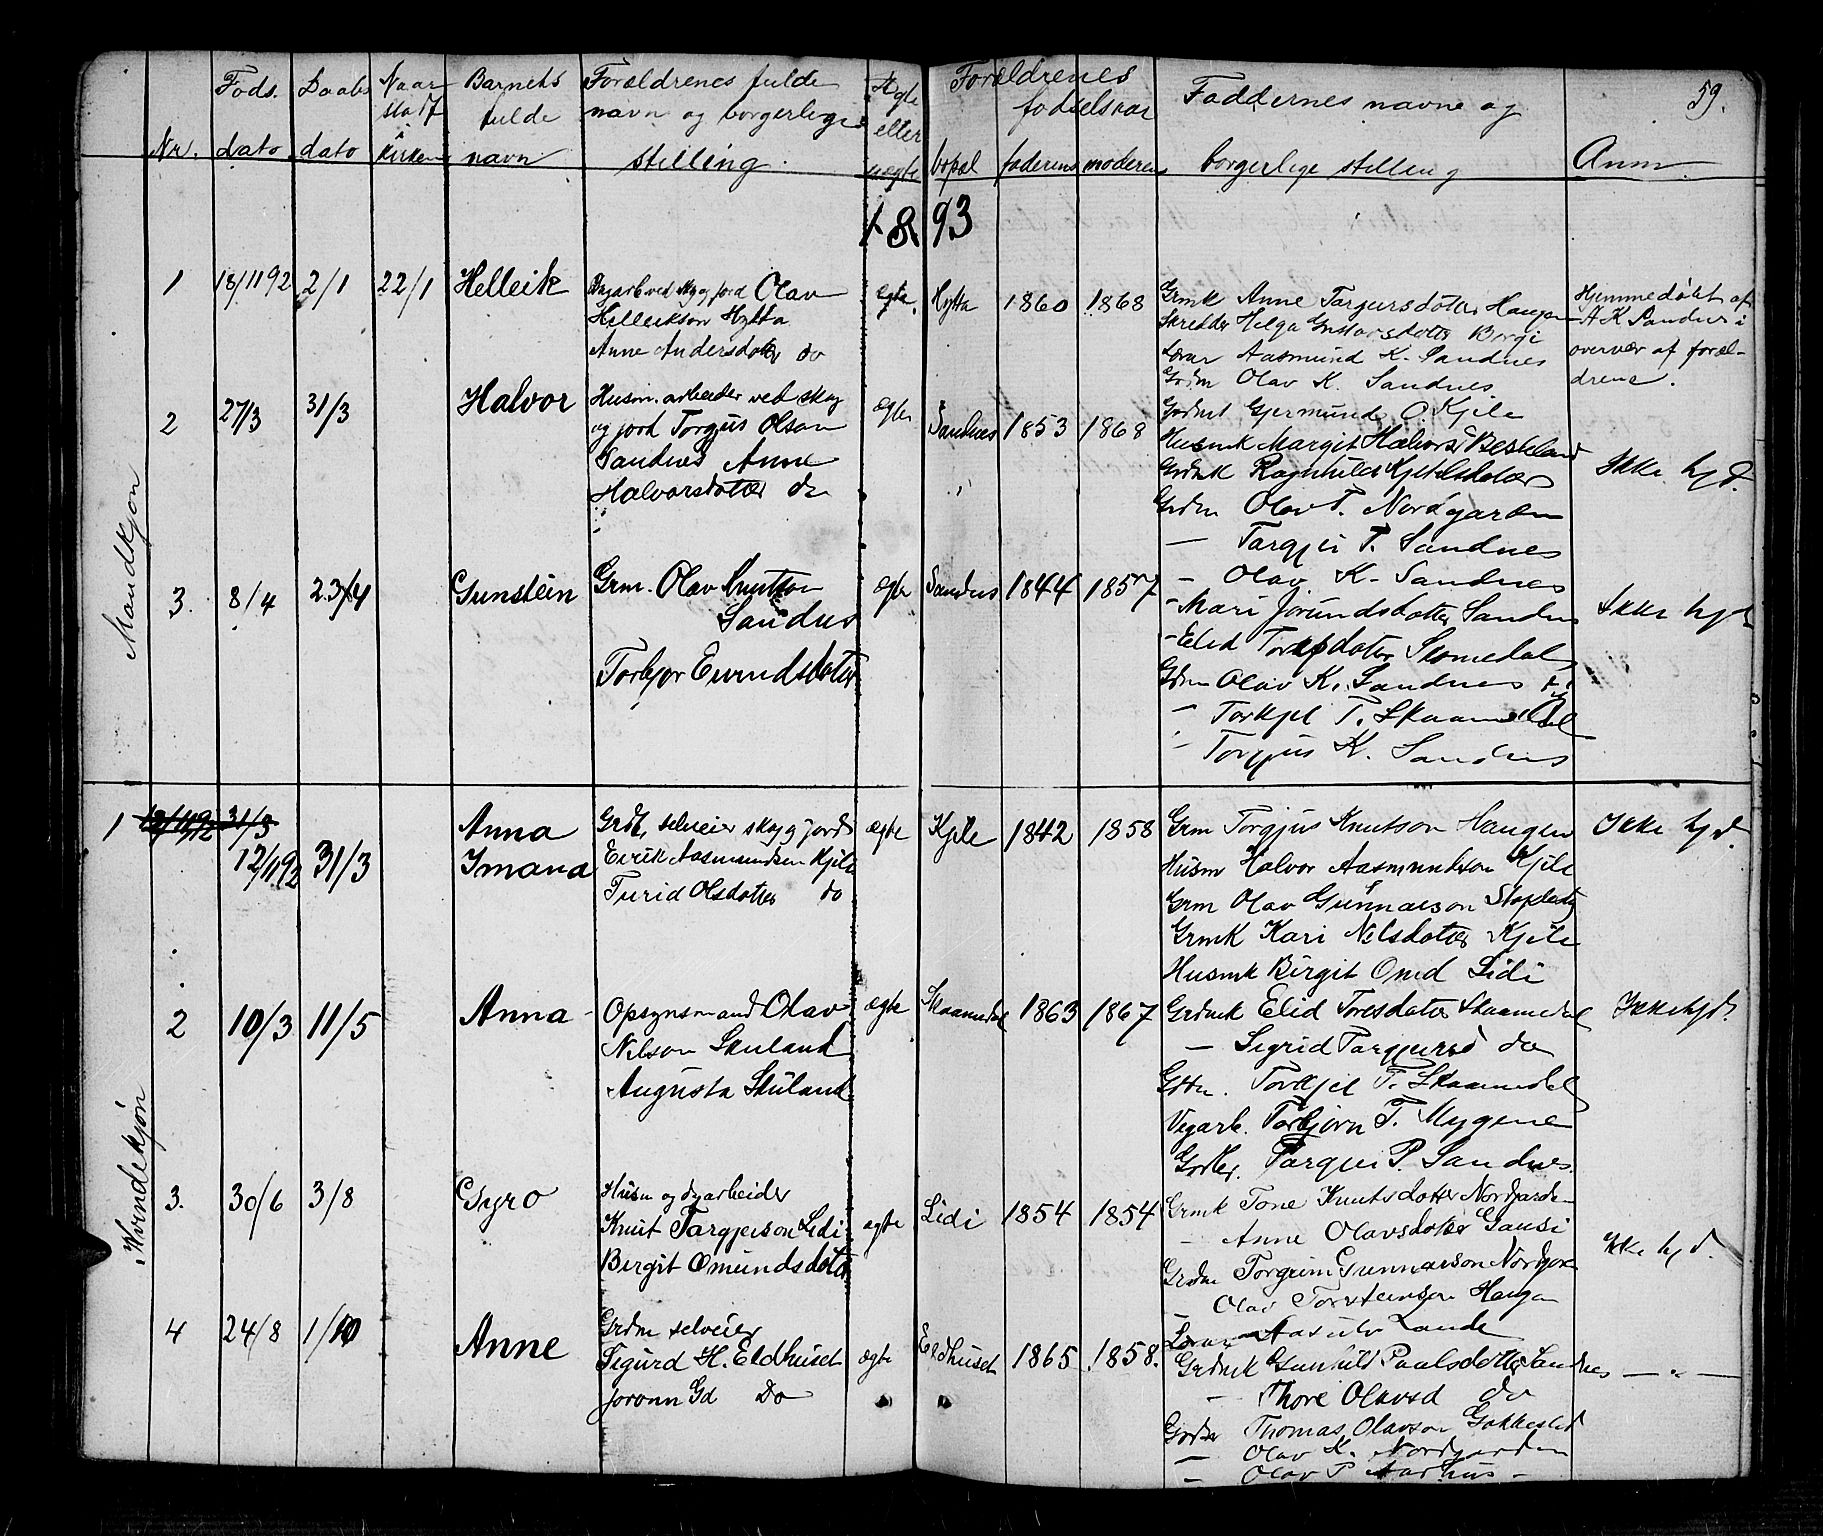 59.
Nr. Føds. dato Daabs dato Naar stadf i kirken Barnets fulde navn Forældrenes fulde navn og borgerlige stilling Ægte eller uægte bopæl Forældrenes fødselsaar faderens moderens Faddernes navne og borgerlige stilling Anm.
1893
Mandkjøn
1 18/11 92 2/1 22/1 Helleik
Olav
Helleikson Hytta
Anne Andersdotter do
ægte. Hytta 1860 1868
Grmk Anne Targjersdotter Haugen
Skredder Helga Gustavsdotter Borgi
Lærar Aasmund K. Sandnes
Grdm Olav K. Sandnes
Hjemmedøbt af
A K Sandnes i
overvær af foræl-
drene.
2 27/3 31/3 Halvor
Husm. arbeider ved skog
og jord Torgjus Olson
Sandnes Anne
Halvorsdotter do
ægte Sandnes 1853 1868
Gjermund O Kjile
Husmk Margit Halvorsd
Grdmk Ragnhild Kjetilsdotter
Grdm Olav T. Nordgarden
— Targjei T. Sandnes
Ikke hjd.
3. 8/4 23/4 Gunstein
Grm. Olav Knutson
Sandnes
Torbjør Eivindsdotter
ægte Sandnes 1844 1857
- Olav K. Sandnes
- Mari Jørundsdotter Sandnes
- Elid Skomedal
Grdm Olav K. Sandnes
- Torkjel T. Skaamedal
- Torgjus K. Sandnes
Ikke hjd
Kvindekjøn
1 12/11 92 31/3
12/11 92 31/3 Anna
Imana
Grdb, selveier skog og jord
Eirik Aasmundsen Kjile
Turid Olsdotter do
ægte Kjile 1842 1858
Grm Torgjus Knutson Haugen
Husm Halvor Aasmundson Kjile
Grm Olav Gunnarson
Grmk Kari Nelsdotter Kjile
Husmk Birgit Omd Lidi
Ikke hjd.
2 10/3 11/5 Anna
Opsynsmand Olav
Nilson Skuland
Augusta Skuland
ægte Skaamedal 1863 1867
Grdmk Elid Toresdotter Skaamedal
— Sigrid Targjersd do
Torkjel T. Skaamedal
Vegarb. Torbjørn T. Mygene
Targjei P. Sandnes.
Ikke hjd.
3. 30/6 3/8 Gyro
Husm og dagarbeider
Knut Targjerson Lidi
Birgit Omundsdotter
ægte Lidi 1854 1854
Grmk Tone Knutsdotter Nordgarden
- Anne Olavsdotter Gausi
Grdm Torgrim Gunnarson Nordgarden
- Olav Torsteinson Haugen
Lærar Aasulv Lande
Ikke hjd.
4 24/8 1/10 Anne
Grdm selveier
Sigurd H. Eldhuset
Joronn Gd Do
ægte Eldhuset 1865 1858.
Grdmk Gunhild Paalsdotter Sandnes
- Thore Olavsd do
Thomas Olavson
— Olav K. Nordgarden
— Olav P Aarhus -
— " —